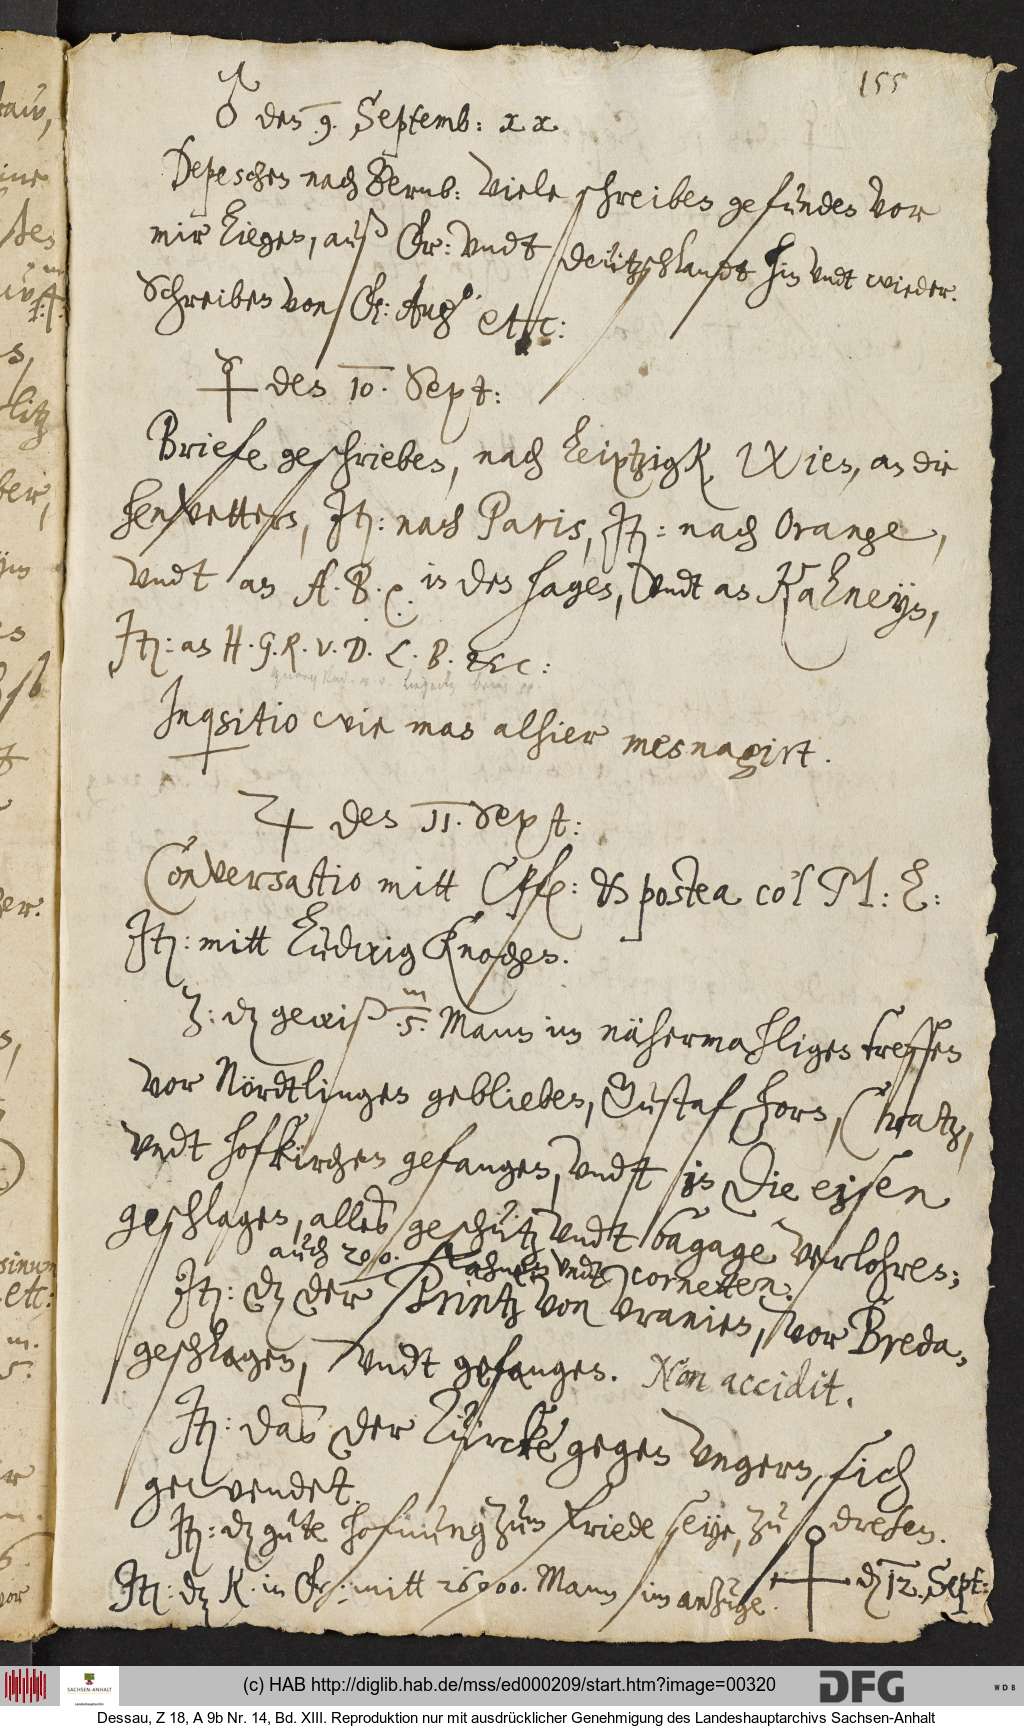 155
♂ den .9. Septemb: x x
Depeschen nach Bernb: Viele schreiben gefunden vor
mir liegen, auß Fr: vndt deützschlandt hin vndt wieder.
Schreiben von Fr: Aug: ettc:
☿ den 10. Sept:
Briefe geschrieben, nach Leiptzigk Wien, an die
hen vettern, Jt: nach Paris, Jt: nach Orange,
vndt an A. B. C. in den hagen, vndt an Kahneÿn,
Jt: an H. G. R. v. D. L. B. etc:
Inqsitio wie man alhier mesnagirt.
♃ den 11. Sept:
Conversatio mitt & postea col M: L:
Jt: mitt Ludwig Knochen.
Z: dz gewiß m/5. Mann im nähermahligen treffen
vor Nördtlingen geblieben, Gustaf horn, Chratz,
vndt hofkirchen gefangen, vndt in die eysen
geschlagen, alles geschütz vndt bagage verlohren;
auch 200. fahnen vndt cornetten.
Jt: dz der Printz von Vranien, vor Breda,
geschlagen, vndt gefangen. Non accidit.
Jt: das der Türcke gegen Vngern, sich
gewendet.
Jt: dz gute hofnung zum friede seye, zu dresen.
Jt: dz K. in Fr: mitt 26000. Mann im anzuge.
☿ dz 12. Sept:
SACHSEN-ANHALT
Landeshauptarchiv
(c) HAB http://diglib.hab.de/mss/ed000209/start.htm?image=00320
DFG
WDB
Dessau, Z 18, A 9b Nr. 14, Bd. XIII. Reproduktion nur mit ausdrücklicher Genehmigung des Landeshauptarchivs Sachsen-Anhalt